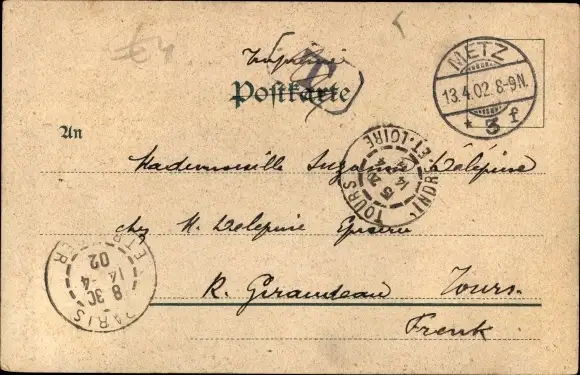 €4
Imprimé
T
Postkarte
METZ
13.4.02. 8-9N.
* 3 f
An
Mademoiselle Suzanne Delépine
TOURS INDRE-ET-LOIRE
14
chez M. Delepine Epicerie
PARIS ETRANGER
8 30
14-4
02
R. Giraudeau Tours.
Frank